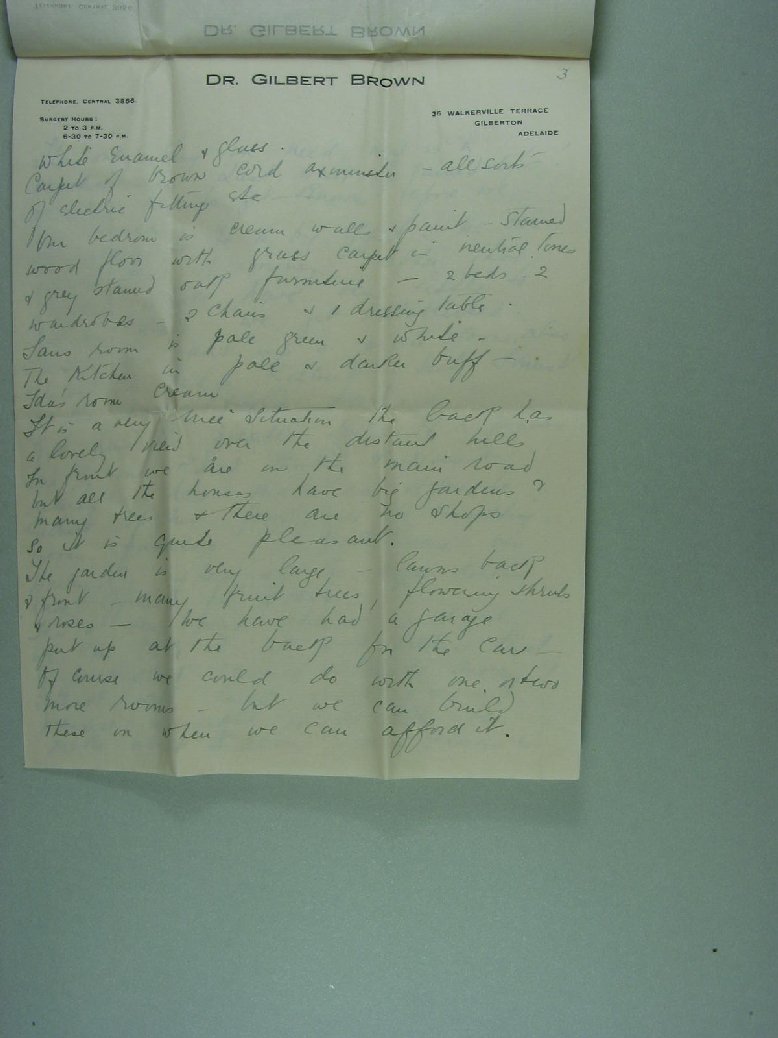 DR. GILBERT BROWN
3
TELEPHONE, CENTRAL 3866.
SURGERY HOURS:
2 TO 3 P.M.
6-30 TO 7-30 P.M.
35 WALKERVILLE TERRACE
GILBERTON
ADELAIDE
White Enamel & glass.
Carpet of brown cord axminster - all sorts
of electric fittings etc
Our bedroom is cream walls & paint - stained
wood floor with grass carpet in neutral tones
& grey stained oak furniture - 2 beds. 2
wardrobes - 2 chairs & 1 dressing table.
Ians room is pale green & white.
The Kitchen in pale & darker buff -
Ida's room cream
It is a very nice situation the back has
a lovely view over the distant hills
In front we are on the main road
but all the houses have big gardens &
many trees & there are no shops
so it is quite pleasant.
The garden is very large - lawns back
& front - many fruit trees, flowering shrubs
& roses - We have had a garage
put up at the back for the cars -
Of course we could do with one or two
more rooms - but we can build
these on when we can afford it.